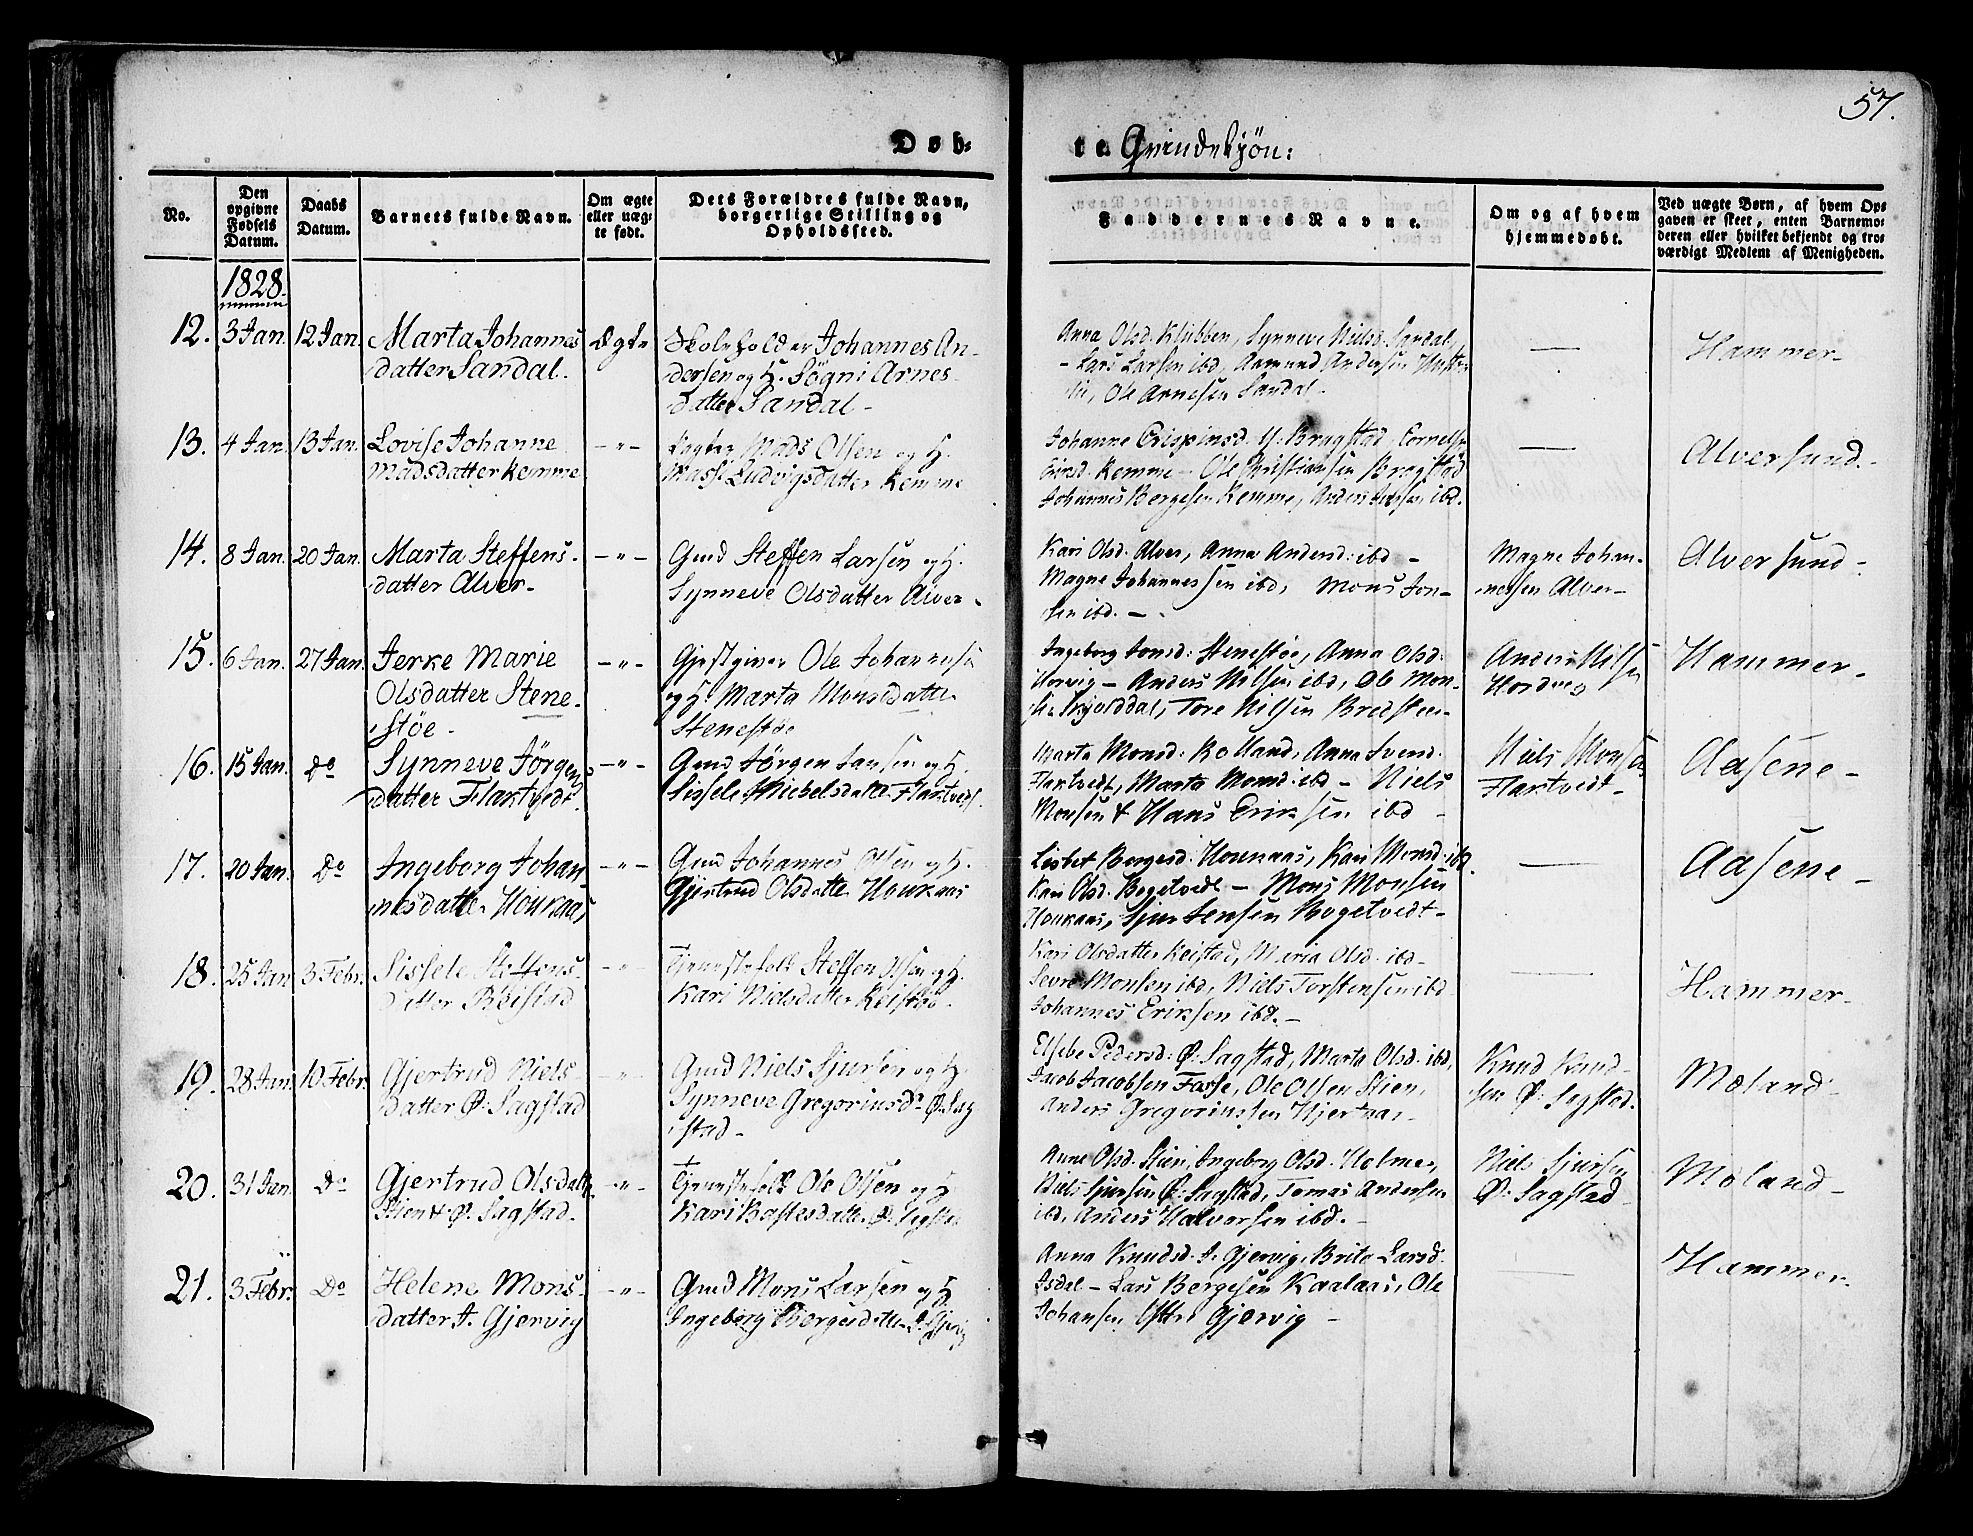 57.
Døb-
te Qvindekjön:
No.
Den opgivne Fødsels Datum.
Daabs Datum.
Barnets fulde Navn.
Om ægte eller uægte født.
Dets Forældres fulde Navn, borgerlige Stilling og Opholdssted.
Faddernes Navne.
Om og af hvem hjemmedøbt.
Ved uægte Børn, af hvem Opgaven er skeet, enten Barnemoderen eller hvilket bekjendt og troværdigt Medlem af Menigheden.
1828.
12. 3 Jan. 12 Jan. Marta Johannes
datter Sandal.
Ægte
Skoleholder Johannes An-
dersen og H. Sögni Arnes-
datter Sandal -
Anna Olsd. Klubben, Synneve Nielsd. Sandal,
- Lars Larsen ibd, Aamund Andersen
Ole Arnesen Sandal -
Hammer-
13. 4 Jan. 13 Jan. Lovise Johanne
Madsdatter Kemme
- " -
Mads Olsen og H.
Ludvigsdatter Kemme
Johanne Crispinsd. Y: Bragstad,
Kemme - Ole Christiansen Bragstad
Johannes Borgesen Kemme, Anders ibd.
Alversund.
14. 8 Jan. 20 Jan. Marta Steffens-
datter Alver-
- " -
Gmd Steffen Larsen og H.
Synneve Olsdatter Alver -
Kari Olsd. Alver, Anna Andersd: ibd -
Magne Johannessen ibd, Mons Jon-
sen ibd. -
Magne Johan-
nessen Alver-
Alversund -
15. 6 Jan. 27 Jan. Jerke Marie
Olsdatter Stene-
støe -
- " -
Gjestgiver Ole Johannesen
og H Marta Monsdatter
Stenestøe
Ingeborg Jonsd: Stenestøe, Anna Olsd:
Horvig - Anders Nilsen ibd, Ole Mon-
sen Skjolddal, Tore Nilsen Bredsteen-
Anders Nilsen
Hordvig
Hammer-
16. 15 Jan. Do Synneve Jörgens
datter Flaktvedt.
- " -
Gmd Jörgen Jansen og H.
Sissele Michelsdatter Flaktvedt.
Marta Monsd: Rolland, Anna Svend.
Flaktvedt, Marta Monsd: ibd - Niels
Monsen & Hans Eriksen ibd -
Niels Monsen
Flaktvedt-
Aasene -
17. 20 Jan. Do Ingeborg Johan-
nesdatter Houkaas
- " -
Gmd Johannes Olsen og H.
Gjertrud Olsdatter Houkaas
Lisbet Borgesd: Houkaas, Kari Monsd: ibd.
Kari Olsd. Bogetvedt - Mons Monsen
Houkaas, Sjur Jensen Bogetvedt-
Aasene -
18. 25 Jan 3 Febr. Sissele Steffens-
datter Reistad
- " -
Tjenestefolk Steffen Olsen og H.
Kari Nielsdatter Reistad.
Kari Olsdatter Reistad, Maria Olsd. ibd-
Monsen ibd, Niels Torstensen ibd
Johannes Eriksen ibd. -
Hammer-
19. 28 Jan 10 Febr. Gjertrud Niels-
datter Ø: Sagstad
"
Gmd Niels Sjursen og H.
Synneve Gregoriusdr. Ø. Sag
stad -
Elsebe Pedersd: Ø: Sagstad, Marta Olsd. ibd,
Jacob Jacobsen Fosse, Ole Olsen Stien,
Anders Gregoriussen Hjertaas
Knud Knud-
sen Ø: Sagstad.
Mæland-
20. 31 Jan. Do Gjertrud Olsdatter
Stien & Ø. Sagstad.
- " -
Tjenestefolk Ole Olsen og H
Kari Bastesdatter Ø. Sagstad
Anne Olsd. Stien, Ingeborg Olsd: Holme,
Niels Sjursen Ø: Sagstad, Tomas Andersen
ibd, Anders Halvorsen ibd. -
Niels Sjursen
Ø: Sagstad-
Mæland -
21. 3 Febr. Do Helene Mons-
datter I. Gjervig
- " -
Gmd Mons Larsen og H
Ingeborg Borgesdatter I. Gjervig
Anna Knudsd. I. Gjervig, Brita Larsd.
Isdal - Lars Bergesen Kaalaas, Ole
Johansen Ystre Gjervig -
Hammer.